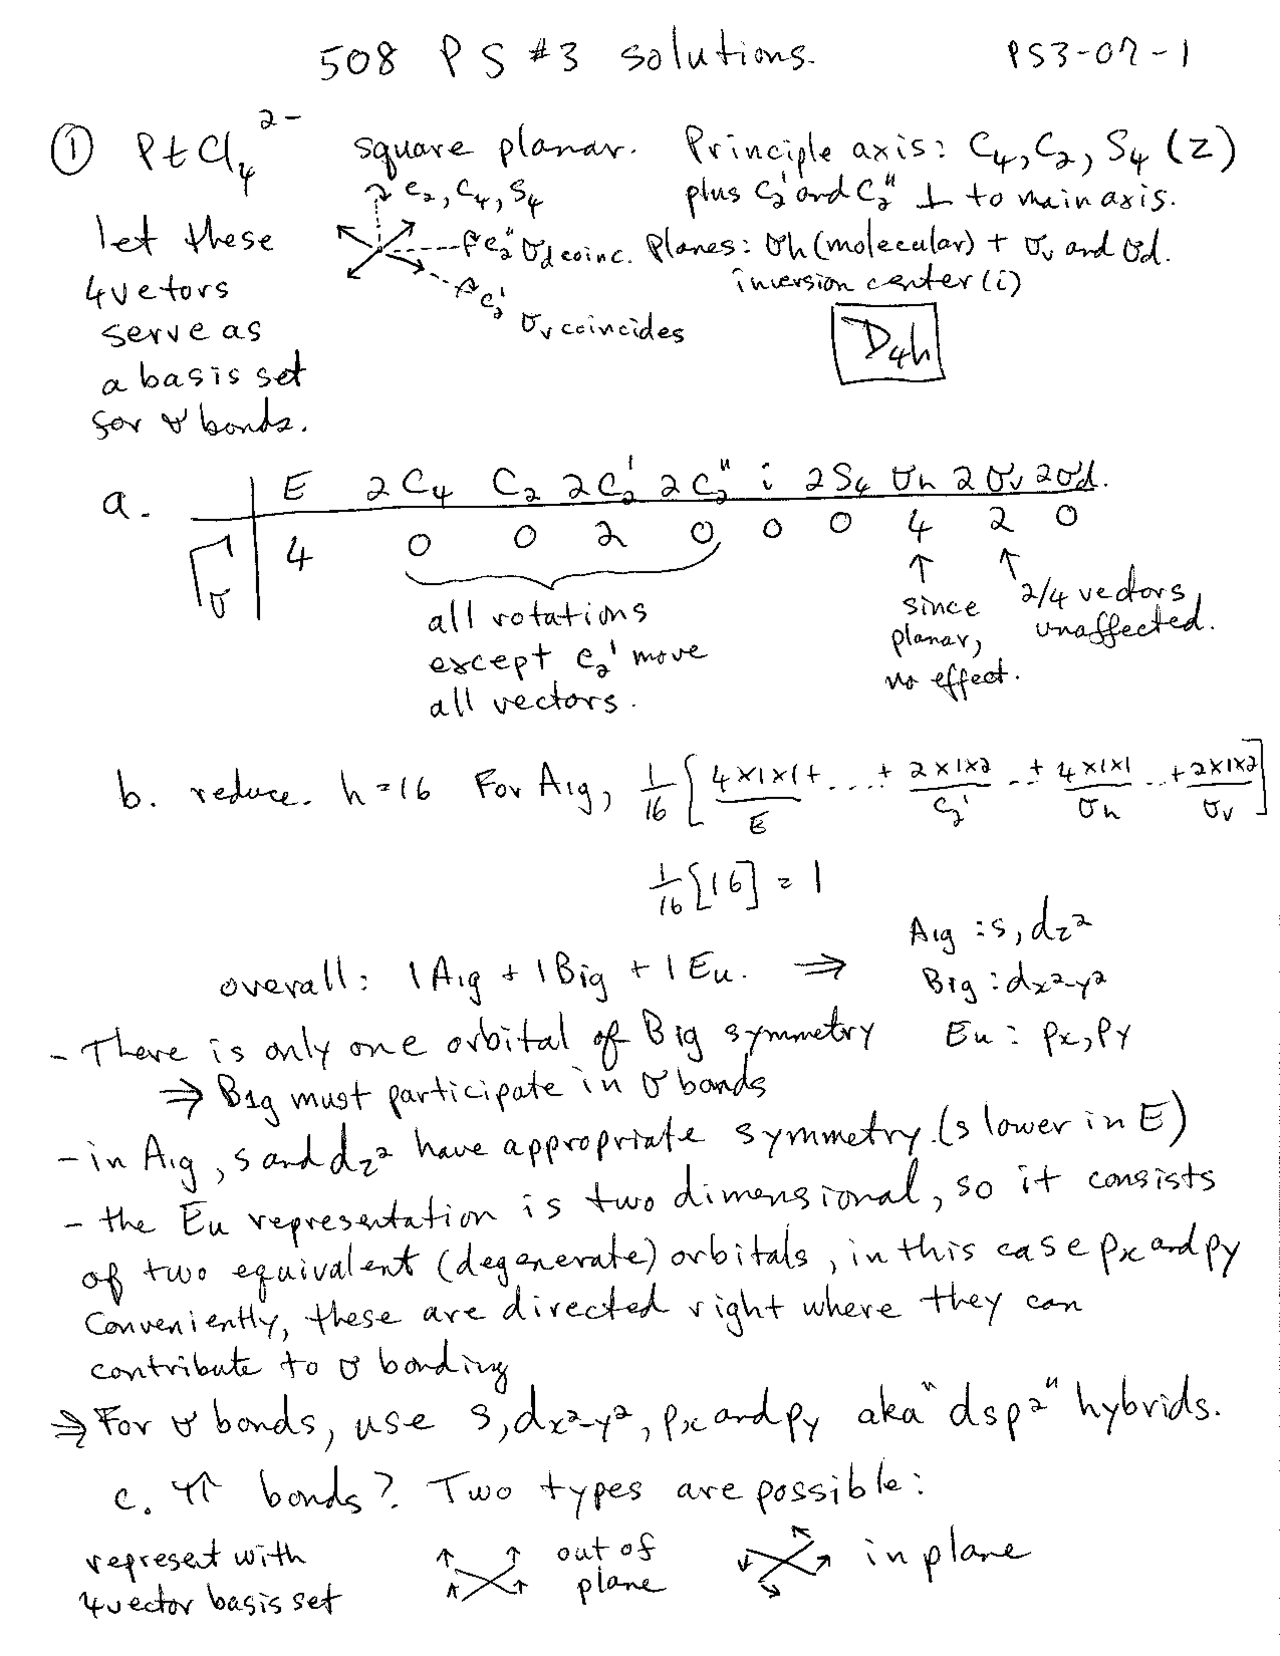 508 PS #3 solutions. PS3-07-1
① PtCl₄²⁻ square planar. Principle axis: C₄, C₂, S₄ (z)
C₂, C₄, S₄ plus C₂' and C₂" ⊥ to main axis.
let these C₂" σd coinc. Planes: σh (molecular) + σv and σd.
4 vetors C₂' inversion center (i)
serve as σv coincides D₄h
a basis set
for σ bonds.
a. E 2C₄ C₂ 2C₂' 2C₂" i 2S₄ σh 2σv 2σd.
Γσ 4 0 0 2 0 0 0 4 2 0
all rotations since 2/4 vectors
except C₂' move planar, unaffected.
all vectors. no effect.
b. reduce. h=16 For A₁g, 1/16 [4×1×1/E + .... + 2×1×2/C₂' ... + 4×1×1/σh ... + 2×1×2/σv]
1/16 [16] = 1
A₁g : s, dz²
overall: 1A₁g + 1B₁g + 1Eu. ⇒ B₁g : dx²-y²
- There is only one orbital of B₁g symmetry Eu : px, py
⇒ B₁g must participate in σ bonds
- in A₁g, s and dz² have appropriate symmetry. (s lower in E)
- the Eu representation is two dimensional, so it consists
of two equivalent (degenerate) orbitals, in this case px and py
Conveniently, these are directed right where they can
contribute to σ bonding
⇒ For σ bonds, use s, dx²-y², px and py aka "dsp²" hybrids.
c. π bonds? Two types are possible:
represent with out of in plane
4 vector basis set plane